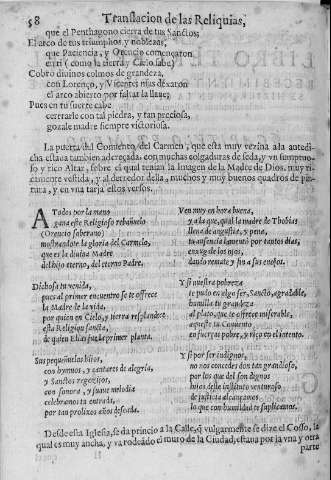 58 Translacion de las Reliquias,
que el Penthagono cierra de tus Sanctos;
El arco de tus triumphos y noblezas,
que Paciencia, y Orencio començaron
en ti (como la tierra y Cielo sabe)
Cobró divinos colmos de grandeza,
con Lorenço, y Vicente: mas dexaron
el arco abierto por faltar la llave;
Pues en tu suerte cabe
cerrarle con tal piedra, y tan preciosa,
gozale madre siempre victoriosa.
La puerta del Convento del Carmen, que està muy vezina à la antedi-
cha estava tambien adereçada, con muchas colgaduras de seda, y un sumptuo-
so y rico Altar, sobre el qual tenian la Imagen de la Madre de Dios, muy ri-
camente vestida, y al derredor della, muchos y muy buenos quadros de pin-
tura, y en una tarja estos versos.
A Todos por la mano
gana este Religioso rebañuelo
(Orencio soberano)
mostrandote la gloria del Carmelo,
que es la divina Madre
del hijo eterno, del eterno Padre.
Dichosa tu venida,
pues al primer encuentro se te offrece
la Madre de la vida,
por quien en Cielo, y tierra resplandece
esta Religion sancta,
de quien Elias fue la primer planta.
Sus pequeñuelos hijos,
con hymnos, y cantares de alegria,
y Sanctos regozijos,
con sonora, y suave melodia
celebramos tu entrada,
por tan prolixos años desseada.
Ven muy en hora buena,
y a la que, qual la madre de Thobias
llena de angustia, y pena,
tu ausencia lamentò por tantos dias,
enxuga los ojos,
dando remate y fin a sus enojos.
Y si nuestra pobreza
te puso en algo ser, Sancto, agradable,
humilla tu grandeza
al plato, que te offrece miserable,
aqueste tu Convento
en fuerças pobre, y rico en el intento.
Y si por ser indignos,
no nos concedes don tan grandioso,
por los que del son dignos
hijos deste instituto venturoso
de justicia alcançamos
lo que con humildad te suplicamos.
Desde esta Iglesia, se da princio a la Calle, q̃ vulgarmente se dize el Cosso, la
qual es muy ancha, y va rodeãdo el muro de la Ciudad, estava por ja una y otra
parte